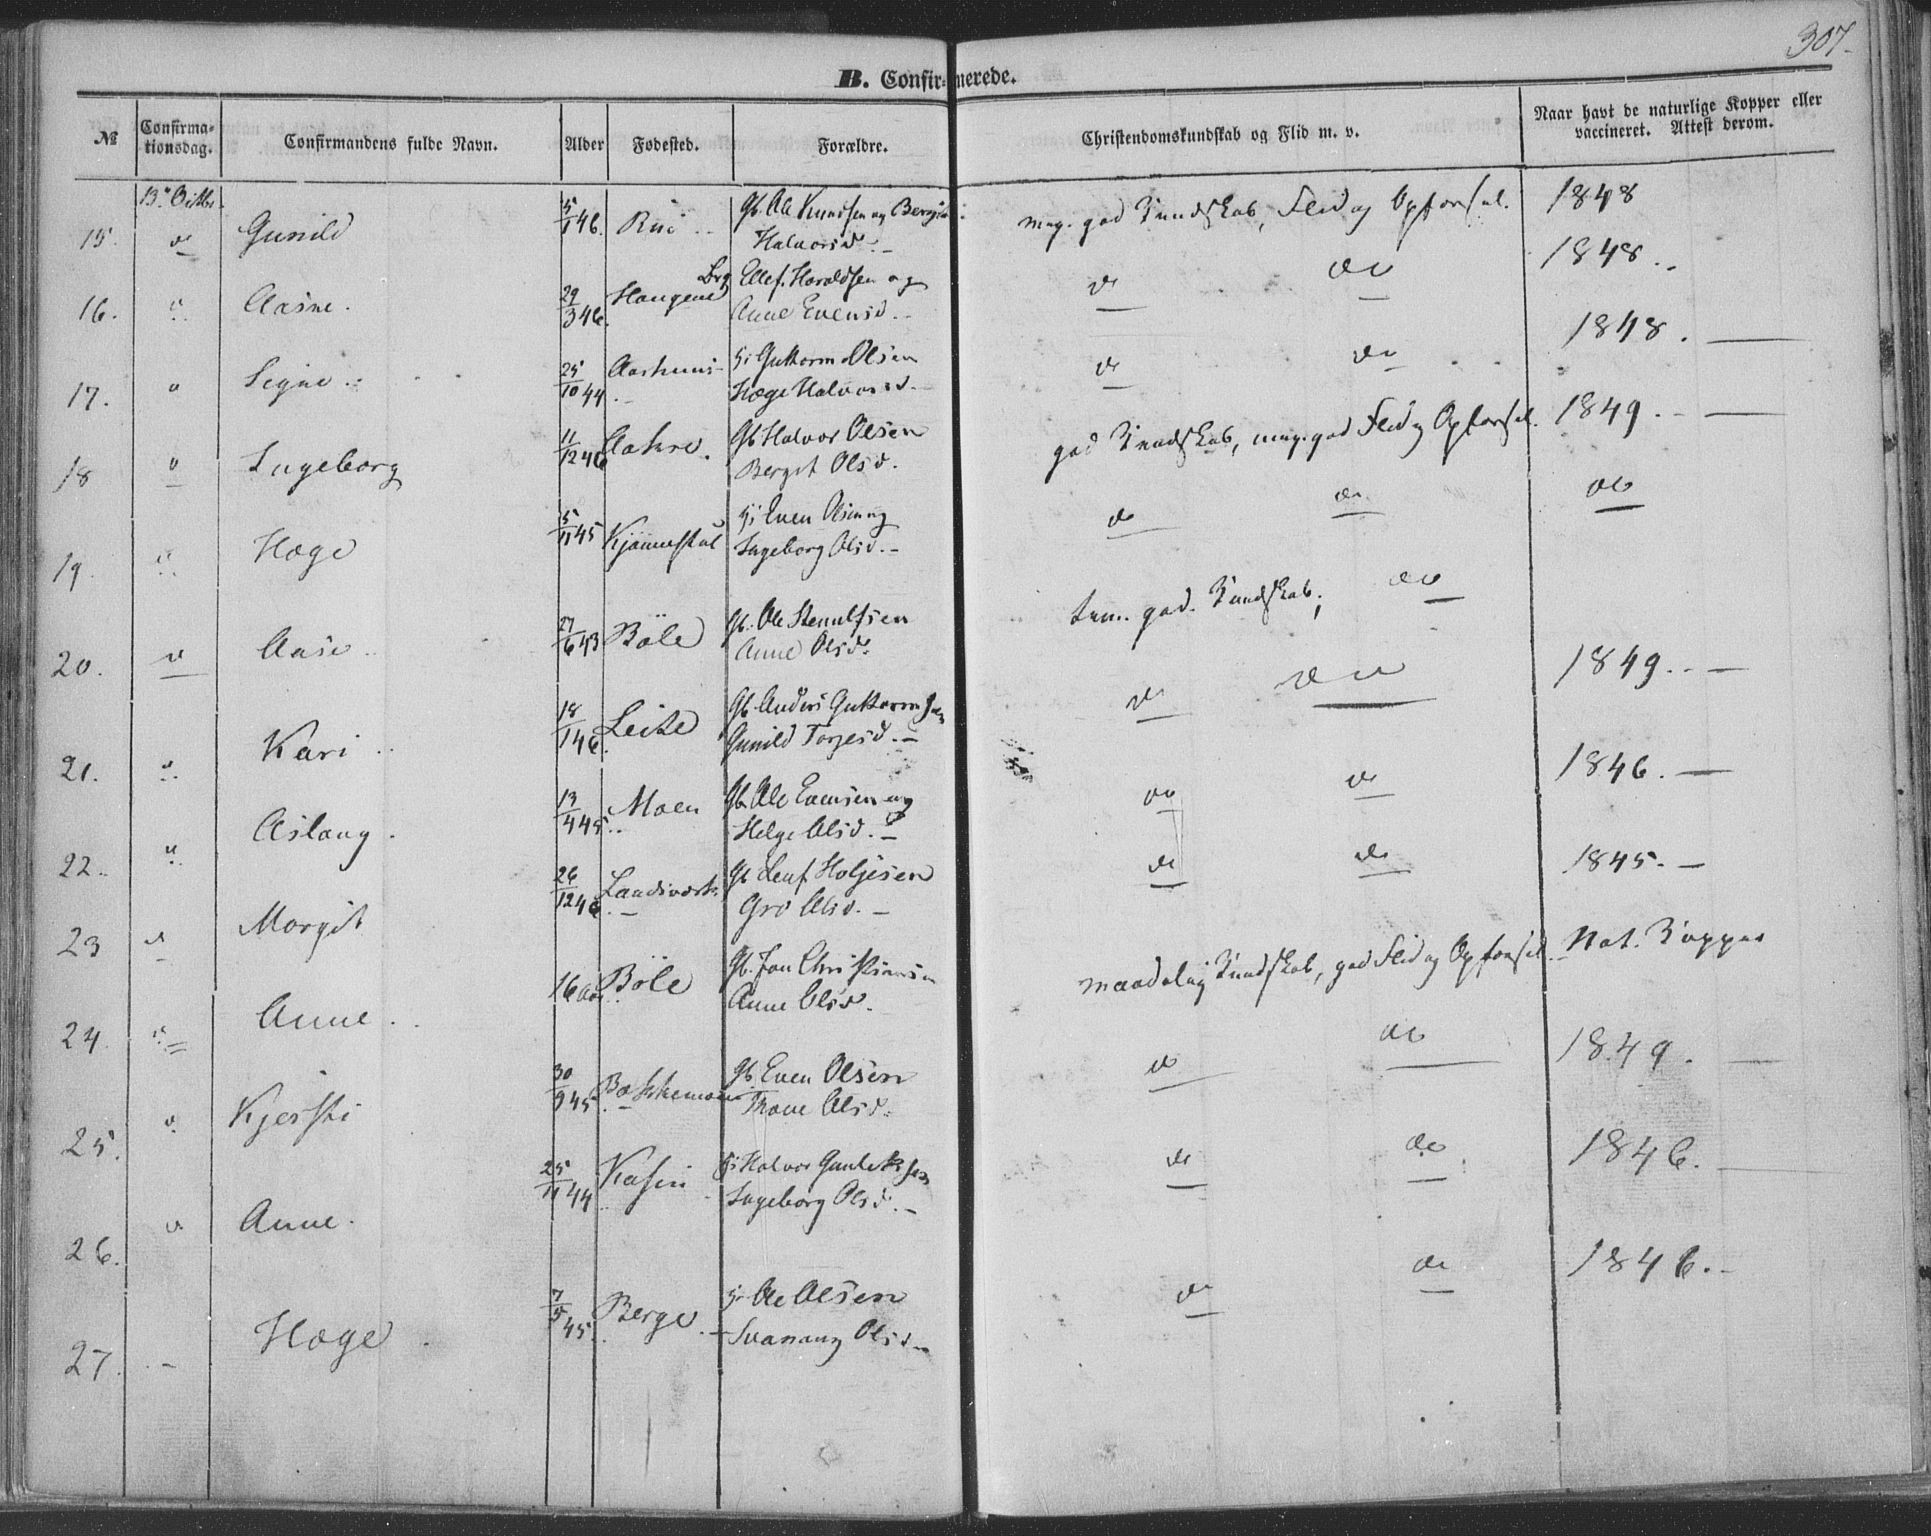 307.
B. Confirmerede.
№ Confirmationsdag. Confirmandens fulde Navn. Alder Fødested. Forældre. Christendomskundskab og Flid m. v. Naar havt de naturlige Kopper eller vaccineret. Attest derom.
15. 13de Octbr. do Gunild 5/1 46. Rui Gb. Ole Knudsen og Halvorsd. meg. god Kundskab, Flid og Opførsel. 1848
16. Aasne. 29/3 46. Haugene Ellef Haraldsen og Anne Evensd. do do 1848
17. Signe 25/10 44 Guttorm Olsen Hæge Halvorsd. do do 1848.
18 Ingeborg 11/12 46 Aakre. Gb Halvor Olsen Berget Olsd. god Kundskab, meg. god Flid og Opførsel. 1849.
19. Hæge 5/11 45 Even Olsen og Ingeborg Olsd. do do do
20. Aase 27/6 43 Böle Gb. Ole Stenulfsen Anne Olsd. tem. god. Kundskab, do
21. Kari 18/1 46. Leite Gb. Anders Guttormsen Gunild Torgesd. do do 1849.
22. Aslaug. 13/4 45 Moen Gb. Ole Evensen og Helge Olsd. do do 1846.
23 Margit 26/12 46 Landsverk Gb Leuf Holjesen Gro Olsd. do do 1845.
24 Anne. 16 Aar Böle Gb. Jon Christiansen Anne Olsd. maadelig Kundskab, god Flid og Opførsel. Nat. Kopper
25. Kjersti 30/9 45 Gb. Even Olsen Thone Olsd. do do 1849.
26. Anne. 25/11 44 Kasin Halvor Gunleksen Ingeborg Olsd. do do 1846.
27. Hæge 7/5 45 Berge Ole Olsen Svanaug Olsd. do do 1846.